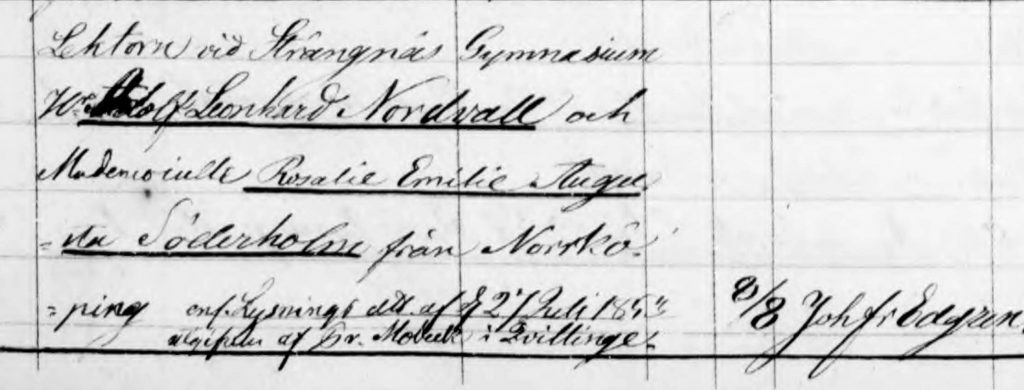 Lektorn vid Strängnäs Gymnasium
Hr Adolf Leonhard Nordvall och
Mademoiselle Rosalie Emilie Augu
=sta Söderholm från Norrkö-
=ping enl. Lysnings att. af d 27 Juli 185
af Hr. i Qvillinge. 8/8 Joh fr Edgren.